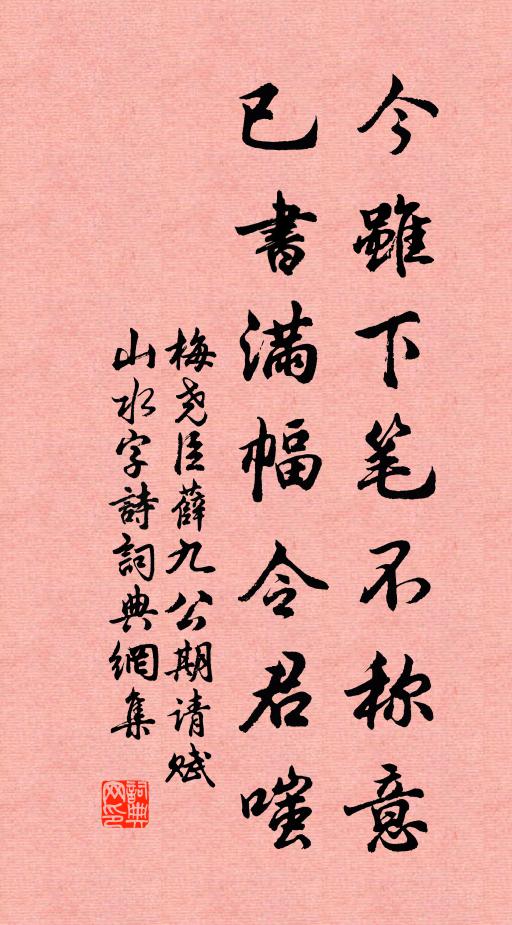 今雖下笔不称意
已書滿幅令君嗤
梅尧臣薛九公期请赋
山水字詩詞典網集
詞典
网印